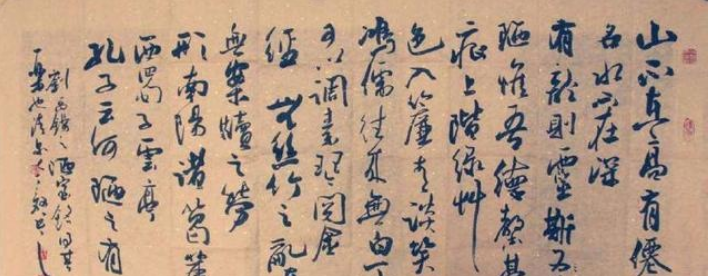 山不在高有僊
名水不在深
有龍則靈斯
陋惟吾德馨
痕上階緑艸
色入簾青談笑
鴻儒往來無白丁
可以調素琴閱金
經無絲竹之亂
無案牘之勞
形南陽諸葛
西蜀子雲亭
孔子云何陋之有
劉禹錫之陋室銘